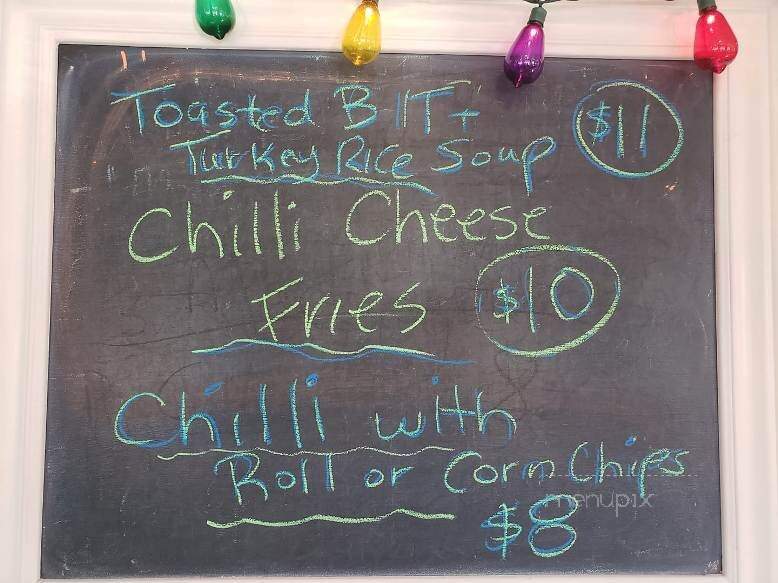 Toasted BlT +
Turkey Rice Soup $11
Chilli Cheese
Fries $10
Chilli with
Roll or Corn Chips
$8
menupix